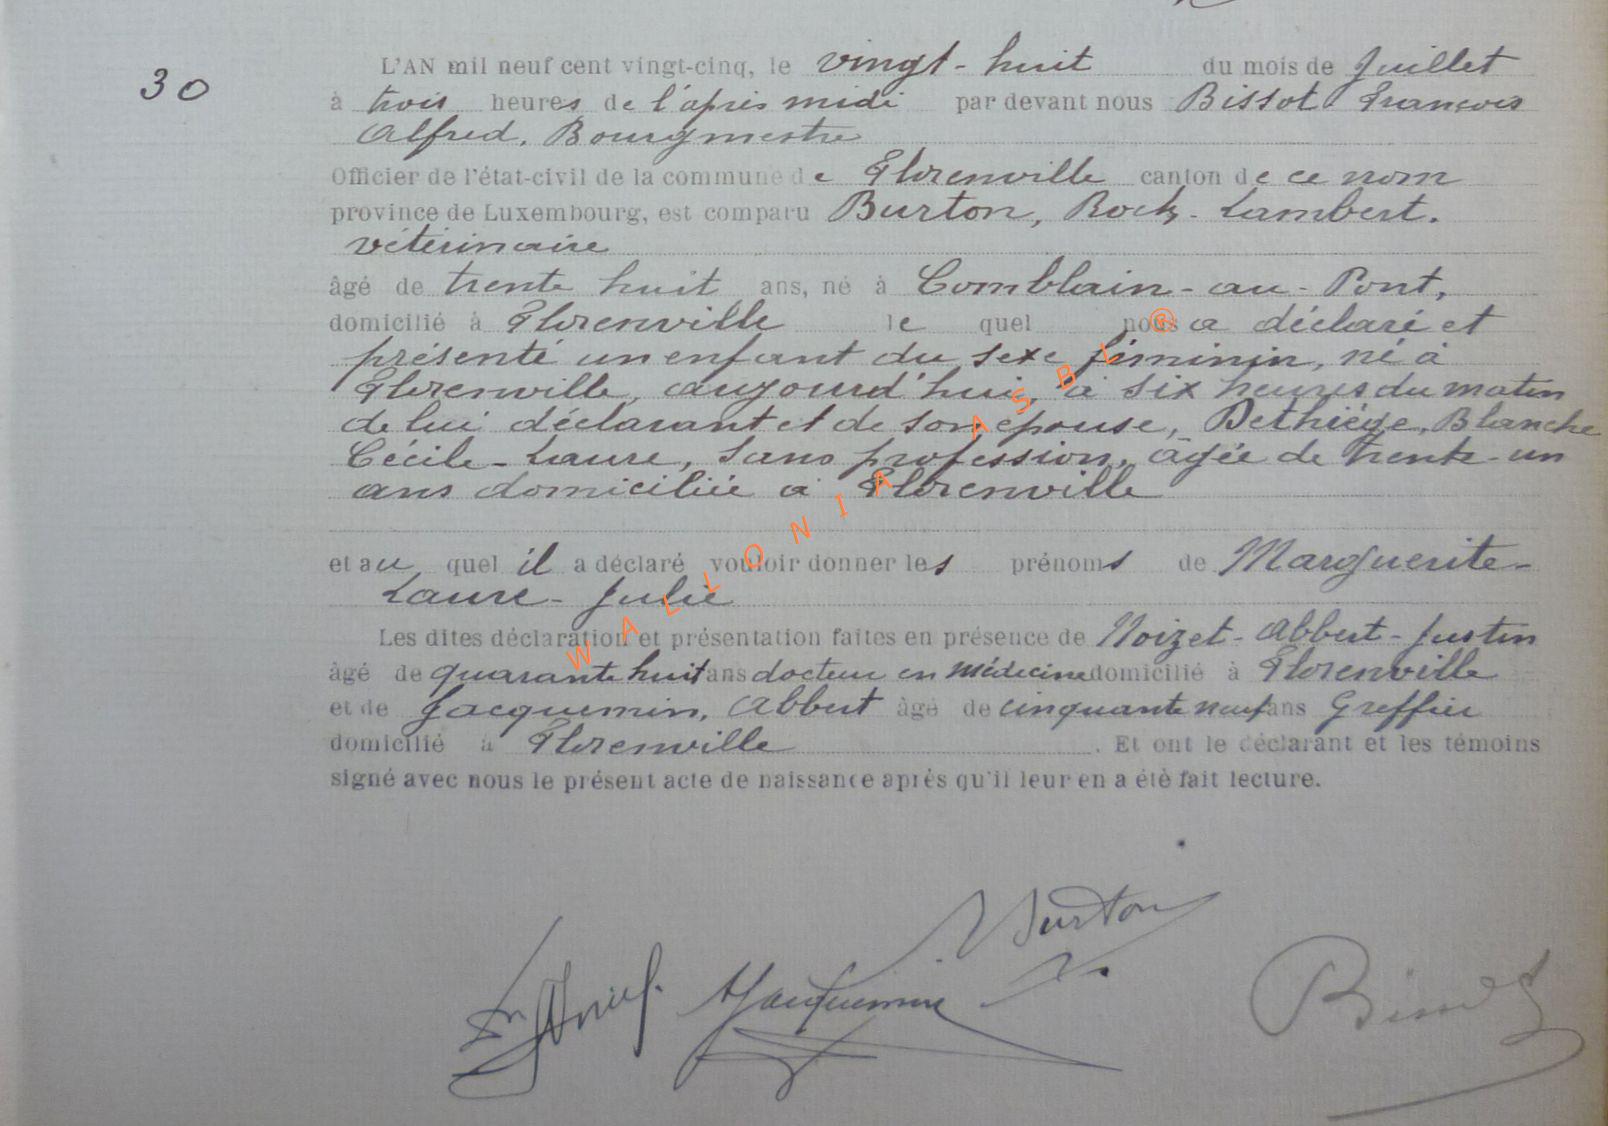 30
L'AN mil neuf cent vingt-cinq, le vingt-huit du mois de Juillet
à trois heures de l'après midi par devant nous Bissot François
Alfred, Bourgmestre
Officier de l'état-civil de la commune de Florenville canton de ce nom
province de Luxembourg, est comparu Burton, Roch-Lambert.
vétérinaire
âgé de trente huit ans, né à Comblain-au-Pont,
domicilié à Florenville le quel nous a déclaré et
présenté un enfant du sexe féminin, né à
Florenville, aujourd'hui, à six heures du matin
de lui déclarant et de son épouse, Dethiège, Blanche
Cécile-Laure, sans profession, âgée de trente-un
ans domiciliée à Florenville
et au quel il a déclaré vouloir donner les prénoms de Marguerite-
Laure-Julie
Les dites déclaration et présentation faites en présence de Noizet-Albert-Justin
âgé de quarante huit ans docteur en médecine domicilié à Florenville
et de Jacquemin, Albert âgé de cinquante neuf ans Greffier
domicilié à Florenville. Et ont le déclarant et les témoins
signé avec nous le présent acte de naissance après qu'il leur en a été fait lecture.
WALLONIA ASBL ®
Burton
AJacquemin
Bissot